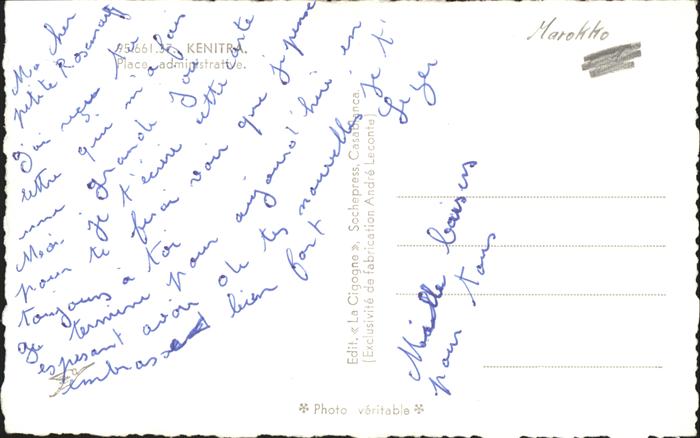 95.661.37. KENITRA.
Place administrative.
Marokko
Ma cher
petite Rosemary
J'ai reçu ta
lettre qui m'a fais
une grande Joie
Moi je t'écrire cette carte
pour te faire voir que je pense
toujours à toi
Je termine pour aujourd'hui en
espesant avoir de tes nouvelles je t'
embrasse bien fort
Mille baisers
pour tous
Edit. « La Cigogne », Sochepress, Casablanca.
(Exclusivité de fabrication André Leconte)
✻ Photo véritable ✻